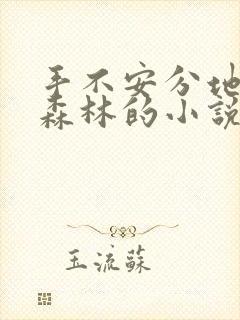 手不安分地
森林的小說
玉流蘇